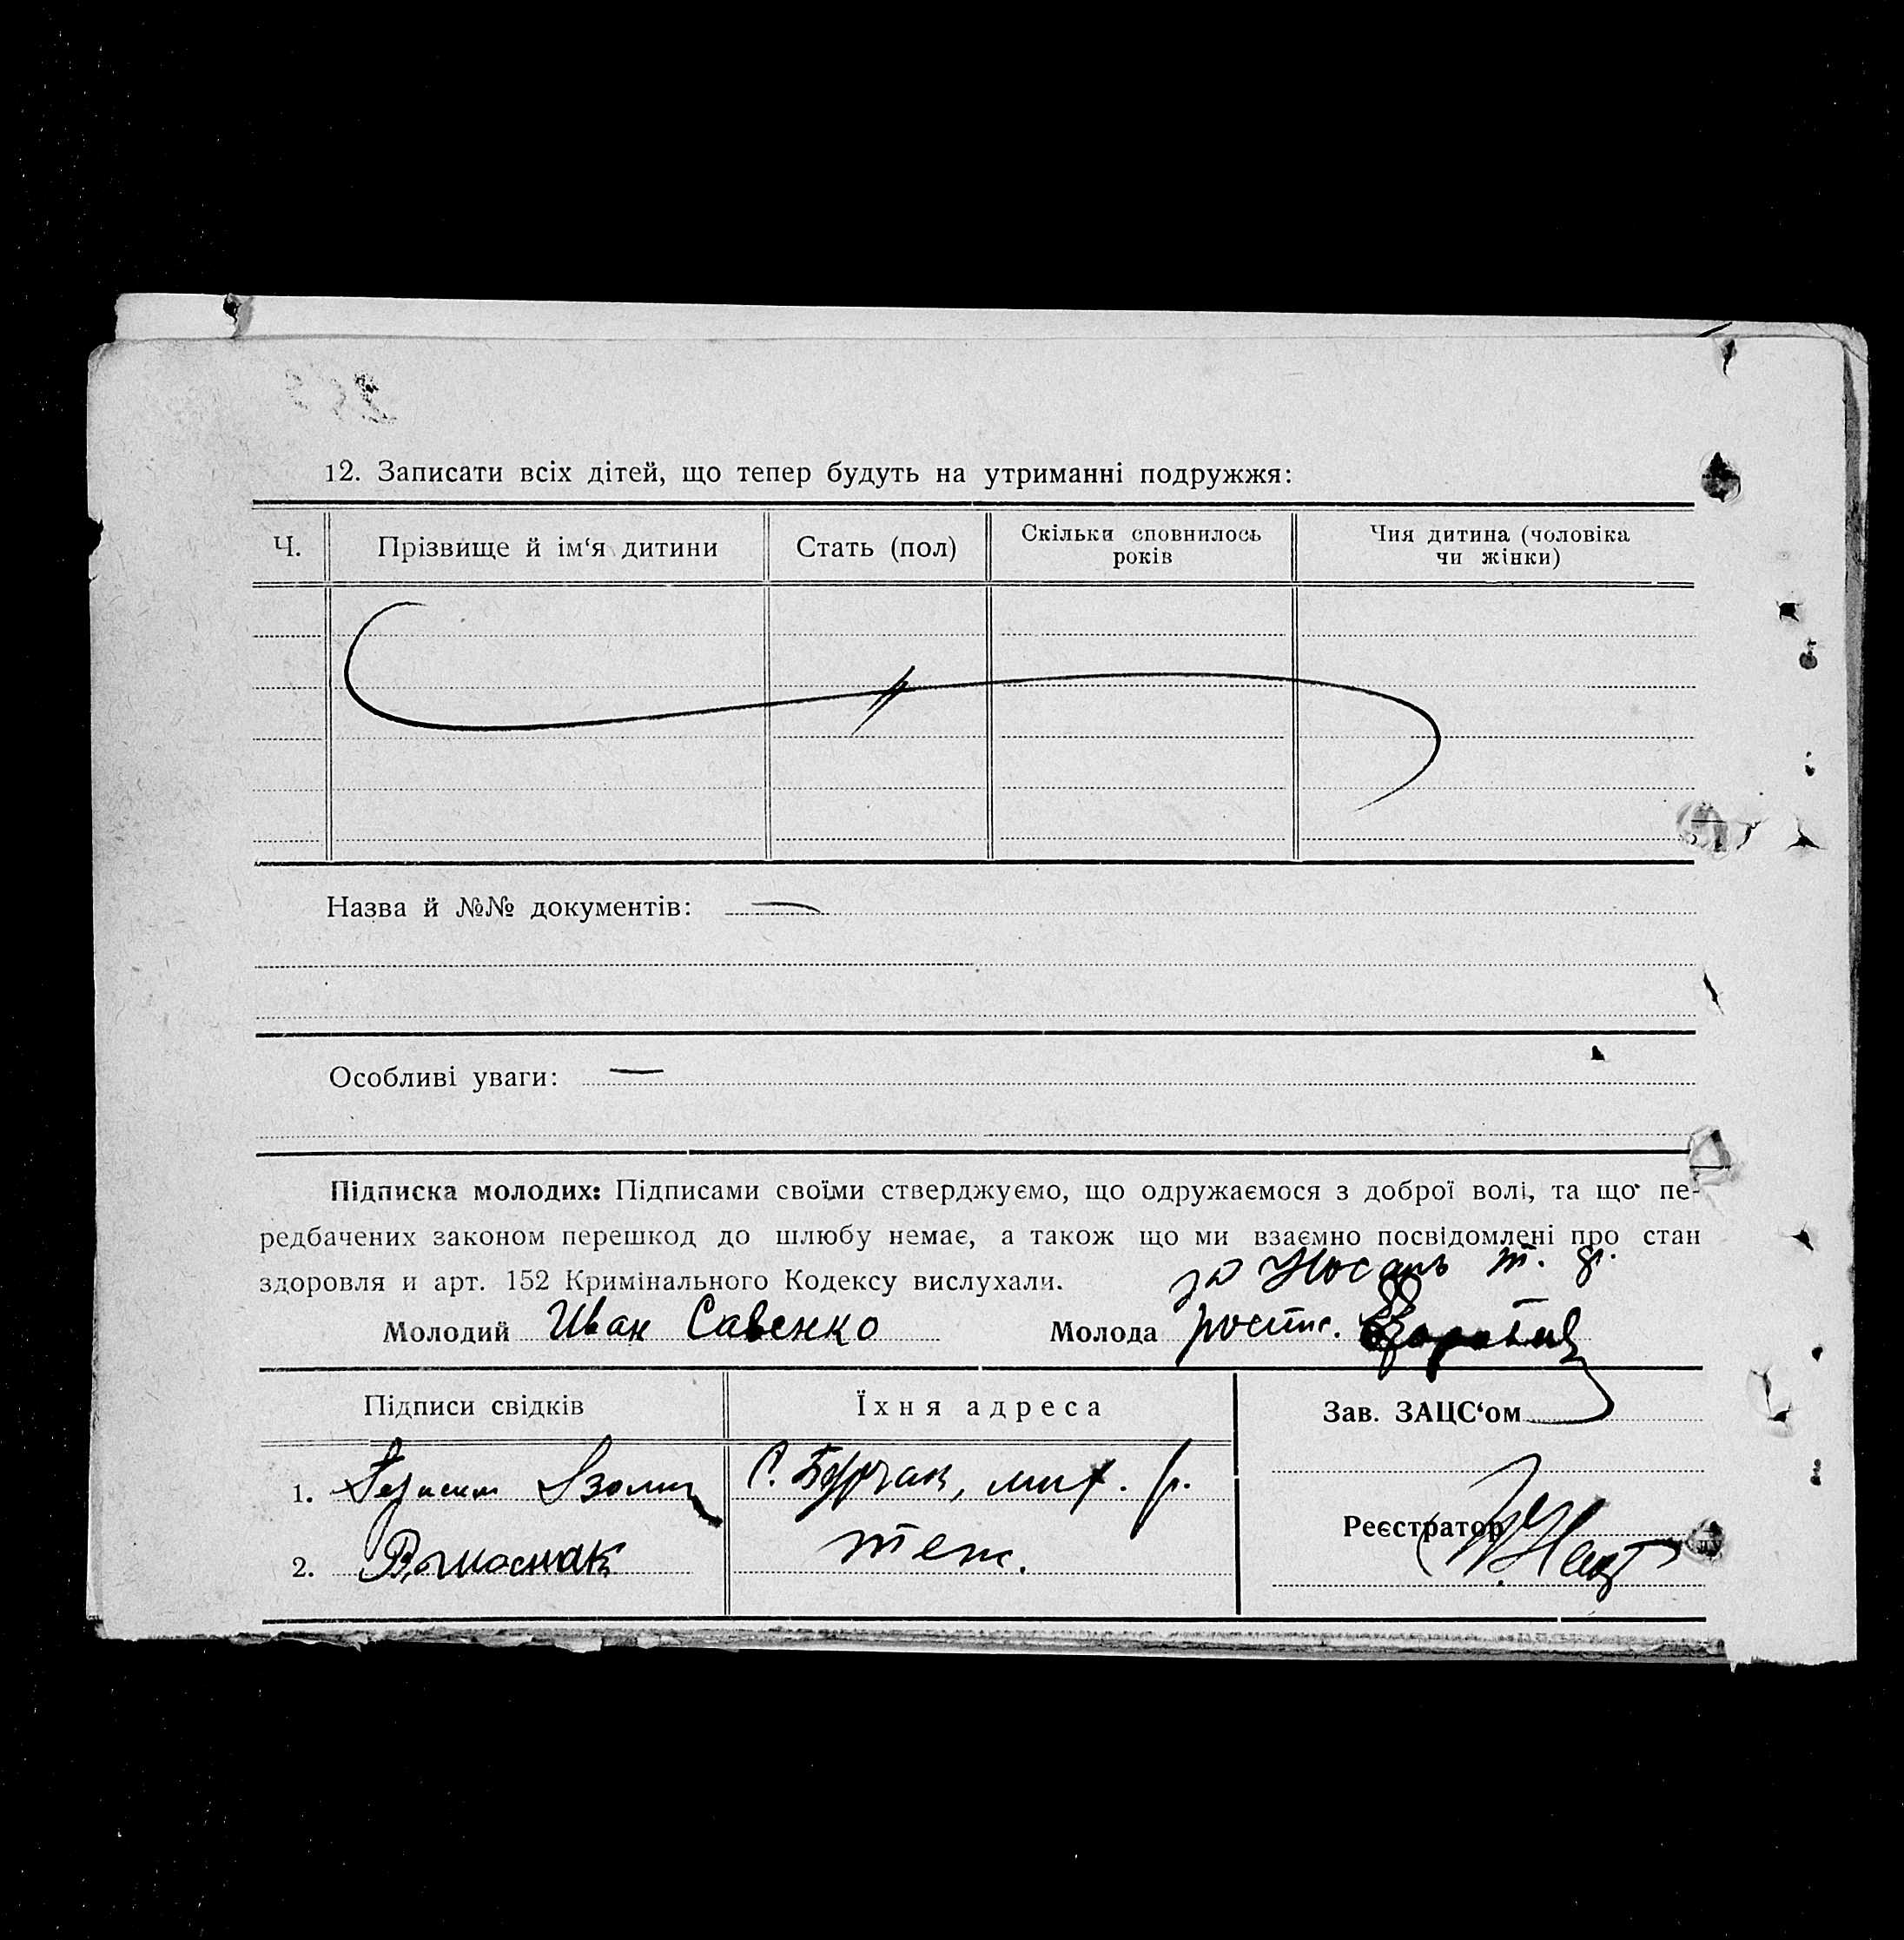 12. Записати всіх дітей, що тепер будуть на утриманні подружжя:
Ч. Прізвище й ім‘я дитини Стать (пол) Скільки сповнилось років Чия дитина (чоловіка чи жінки)
Назва й №№ документів: —
Особливі уваги: —
Підписка молодих: Підписами своїми стверджуємо, що одружаємося з доброї волі, та що пе-
редбачених законом перешкод до шлюбу немає, а також що ми взаємно посвідомлені про стан
здоровля и арт. 152 Кримінального Кодексу вислухали.
за Носань т. д.
Молодий Иван Савенко Молода
Підписи свідків Їхня адреса Зав. ЗАЦС‘ом
1. С.
Реєстратор
2. теж.